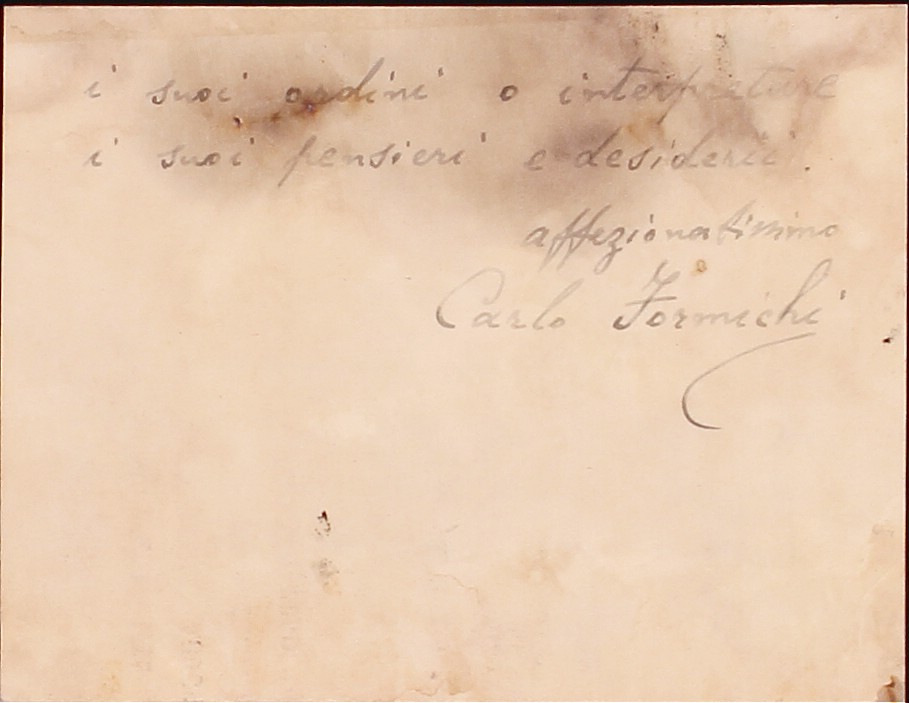 i suoi ordini o interpretare
i suoi pensieri e desiderii.
affezionatissimo
Carlo Formichi